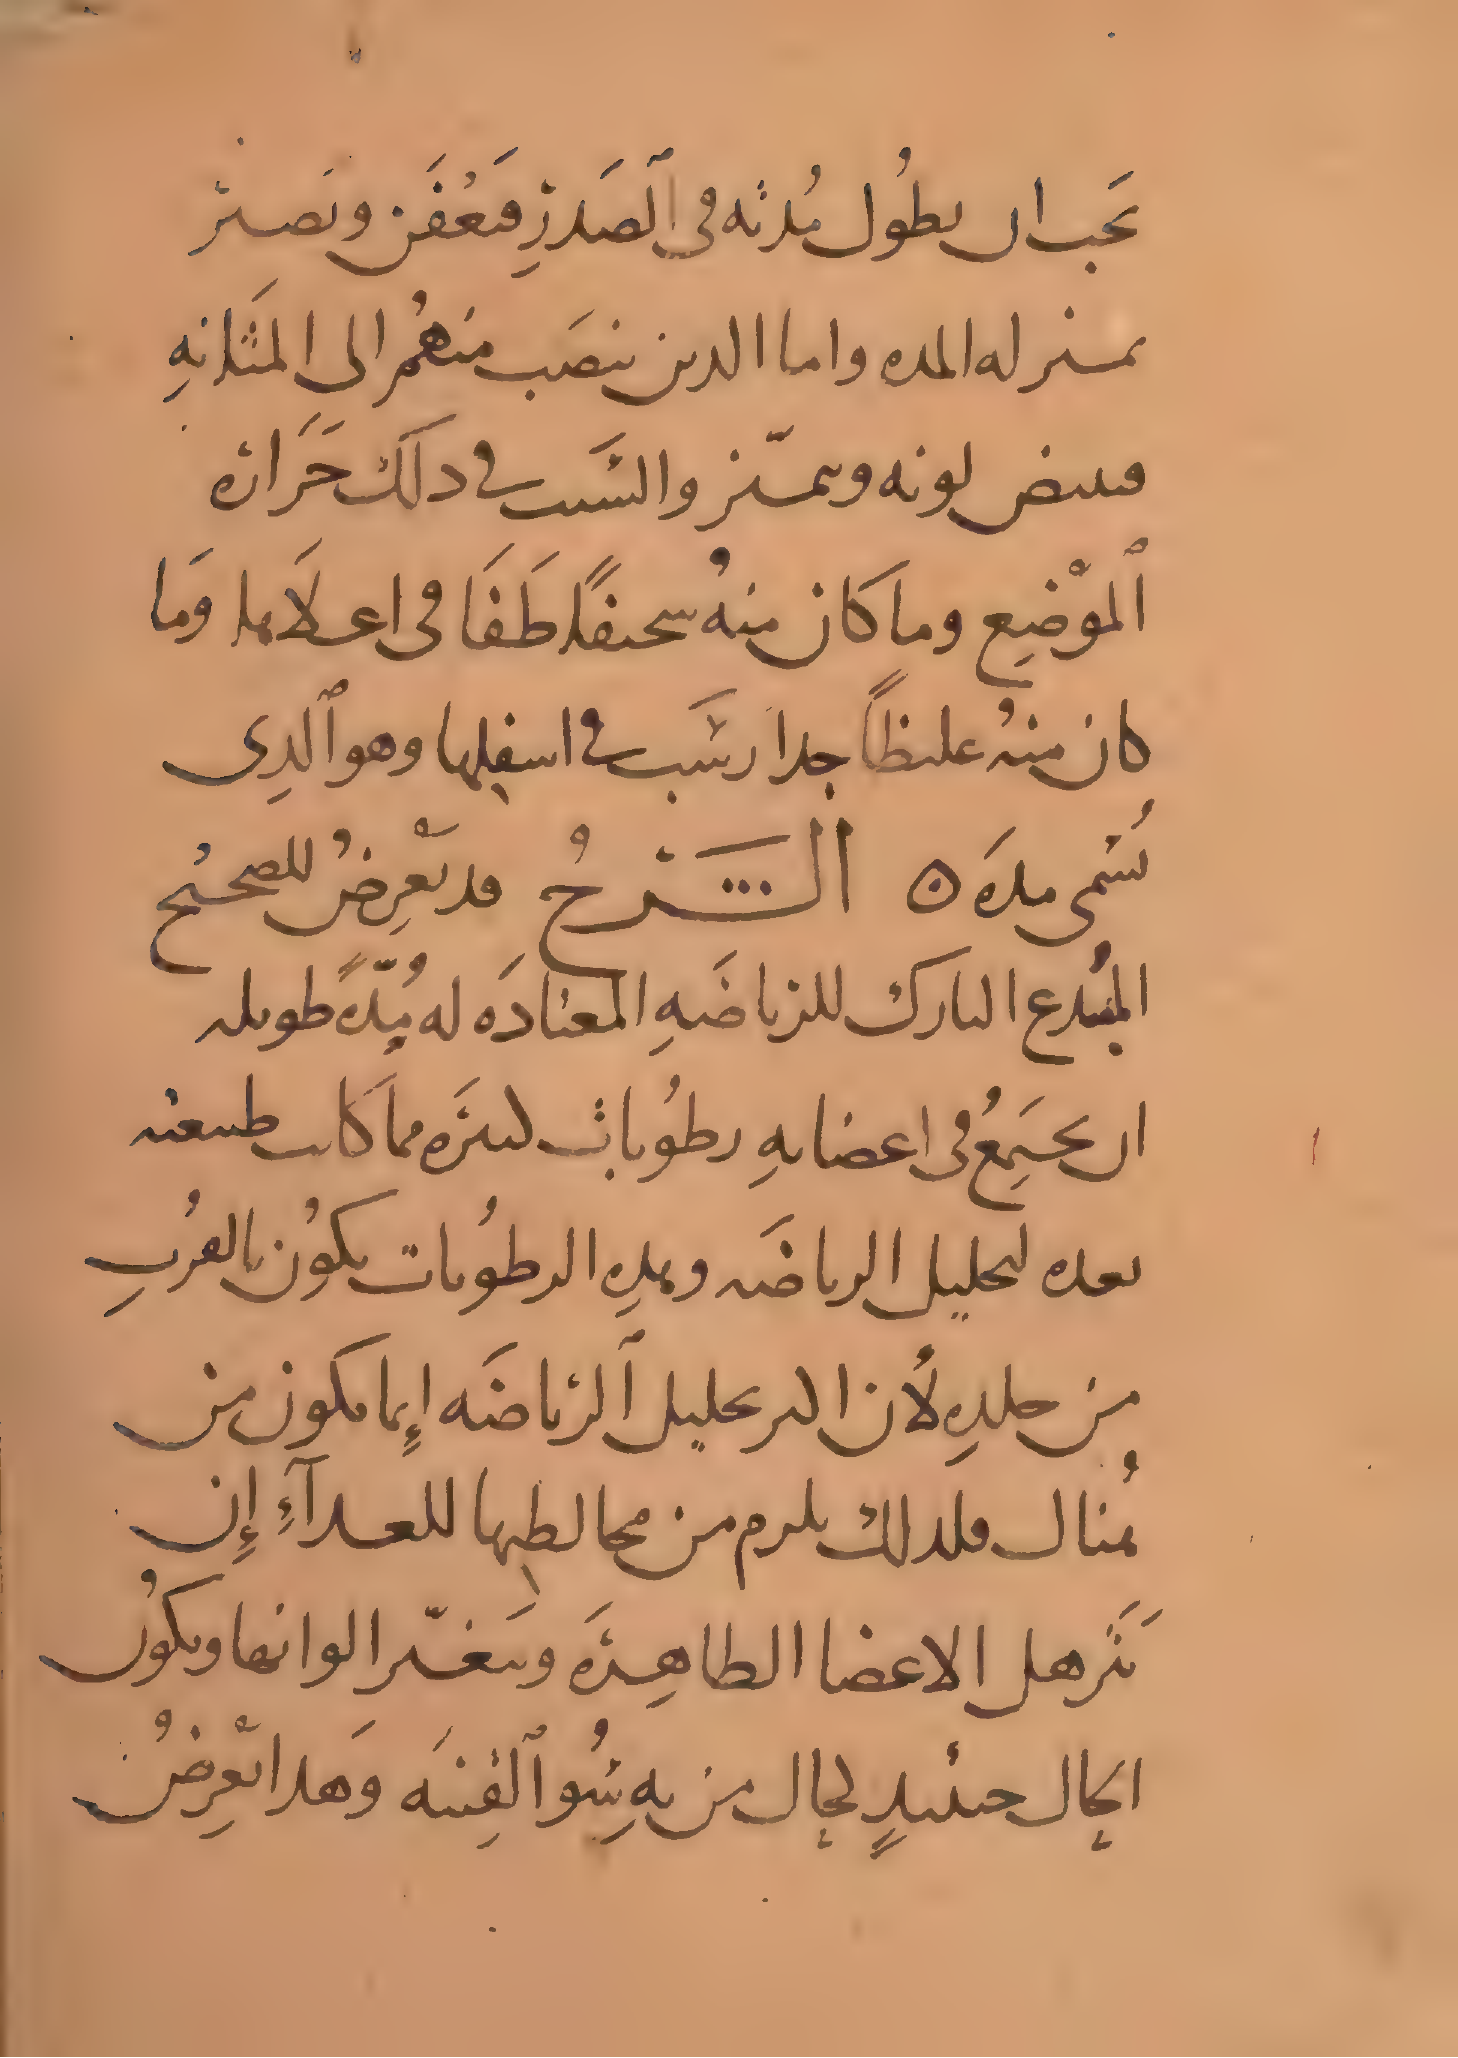 يجب ان يطُول مُدته فى ٱلصَدرِ فيَعْفَن ويَصير
بمنزله المده واما الذين ينصَب منهُم الى المَثانهِ
فيبيض لونه ويتميّز والسَبب فى ذلَك حَرَاره
ٱلموْضِع وما كَان منهُ سخيفًا طَفَا فى اعلَاها وَما
كان منهُ غليظاً جدا رسَب فى اسفِلها وهو ٱلذِى
يُسَمى مدَه ٥ الشَرْحُ قد يَعْرِضُ للصحيح
المُبتدع التارك للرياضَهِ المعتادَه له مُدّهً طويله
ان يجتَمِعُ فى اعضايهِ رطُوبات كثيَره مما كَانت طبيعته
بعده لتحليل الرياضَه وهذِه الرطُوبات يكُون بالقُربِ
من جلدِه لأن اكثر تحليل ٱلرياضَه إِنما يكون من
هُناك فلذلك يلزم من مخالطِتها للغذآءِ إِن
يَتَرَهل الاعضا الظاهِرَه ويتَغيّر الوانها ويكوُن
الحال حينئيذٍ كحال من بِه سُو ٱلقِنيَه وَهذا يَعْرِضُ